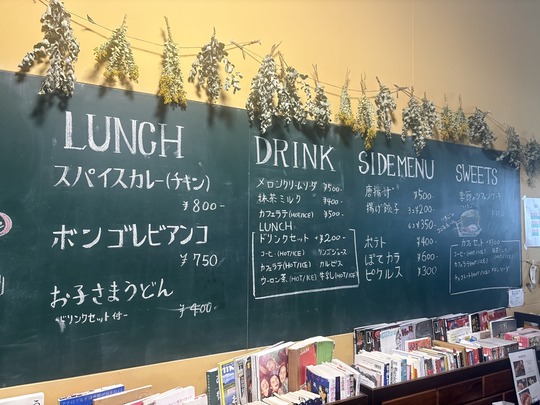 LUNCH
スパイスカレー(チキン)
¥800-
ボンゴレビアンコ
¥750
お子さまうどん
ドリンクセット付-
¥400-
DRINK
メロンクリームソーダ ¥500-
抹茶ミルク ¥400-
カフェラテ(HOT/ICE) ¥500-
LUNCH
ドリンクセット +¥200-
コーヒー(HOT/ICE)
カフェラテ(HOT/ICE) カルピス
ウーロン茶(HOT/ICE)
SIDEMENU
唐揚げ ¥500-
揚げ餃子 3コ¥200-
6コ¥350-
ポテト ¥400-
ぽてカラ ¥600-
ピクルス ¥300
SWEETS